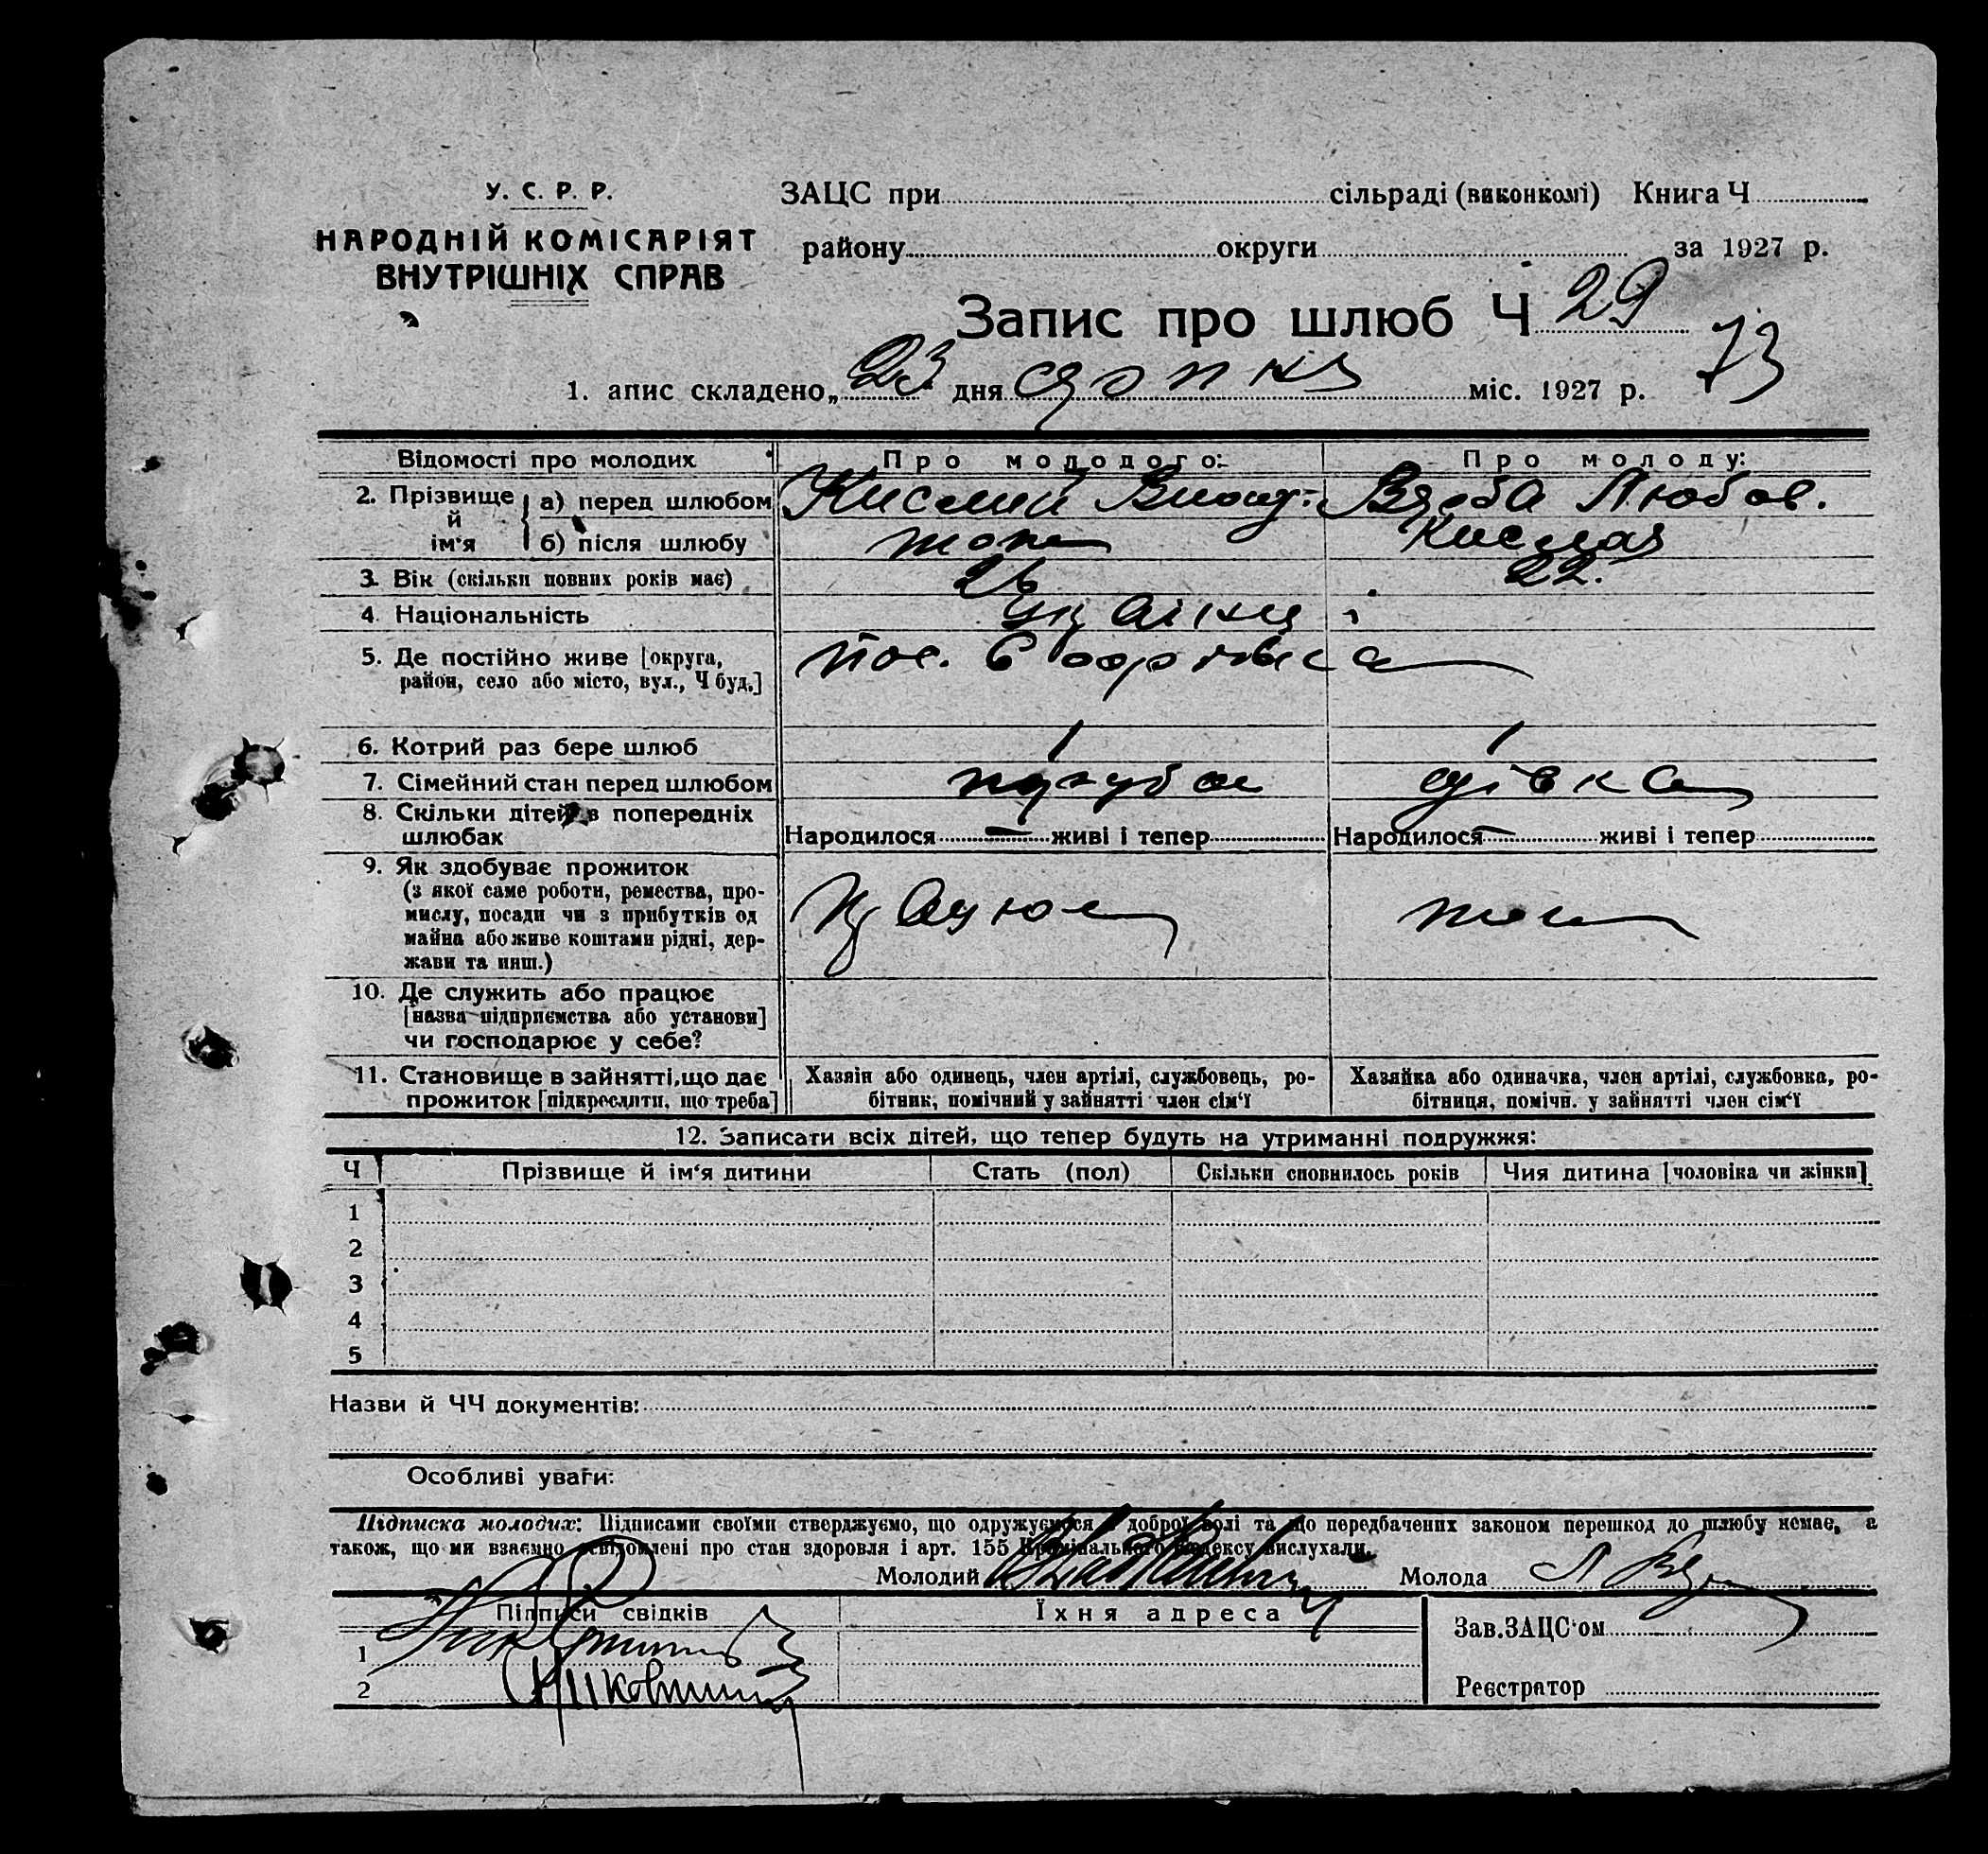 У. С. Р. Р.
НАРОДНІЙ КОМІСАРІЯТ
ВНУТРІШНІХ СПРАВ
ЗАЦС при сільраді (виконкомі) Книга Ч
району округи за 1927 р.
Запис про шлюб Ч 29
73
1. апис складено „ 23 дня міс. 1927 р.
Відомості про молодих Про молодого: Про молоду:
2. Прізвище й ім'я { а) перед шлюбом Любов.
б) після шлюбу
3. Вік (скільки повних років має) 26 22.
4. Національність
5. Де постійно живе [округа,
район, село або місто, вул., Ч буд.]
6. Котрий раз бере шлюб 1 1
7. Сімейний стан перед шлюбом парубок дівка
8. Скільки дітей в попередніх
шлюбах Народилося — живі і тепер Народилося — живі і тепер
9. Як здобуває прожиток
(з якої саме роботи, ремества, про-
мислу, посади чи з прибутків од
майна або живе коштами рідні, дер-
жави та инш.)
Працює
10. Де служить або працює
[назва підприємства або установи]
чи господарює у себе?
11. Становище в зайнятті, що дає
прожиток [підкреслити, що треба]
Хазяїн або одинець, член артілі, службовець, ро-
бітник, помічний у зайнятті член сім'ї
Хазяйка або одиначка, член артілі, службовка, ро-
бітниця, помічн. у зайнятті член сім'ї
12. Записати всіх дітей, що тепер будуть на утриманні подружжя:
Ч Прізвище й ім'я дитини Стать (пол) Скільки сповнилось років Чия дитина [чоловіка чи жінки]
1
2
3
4
5
Назви й ЧЧ документів:
Особливі уваги:
Підписка молодих: Підписами своїми стверджуємо, що одружуємося з доброї волі та що передбачених законом перешкод до шлюбу немає, а
також, що ми взаємно освідомлені про стан здоровля і арт. 155 Кримінального Кодексу вислухали.
Молодий Молода
Підписи свідків Їхня адреса
1
2
Зав.ЗАЦС'ом
Реєстратор